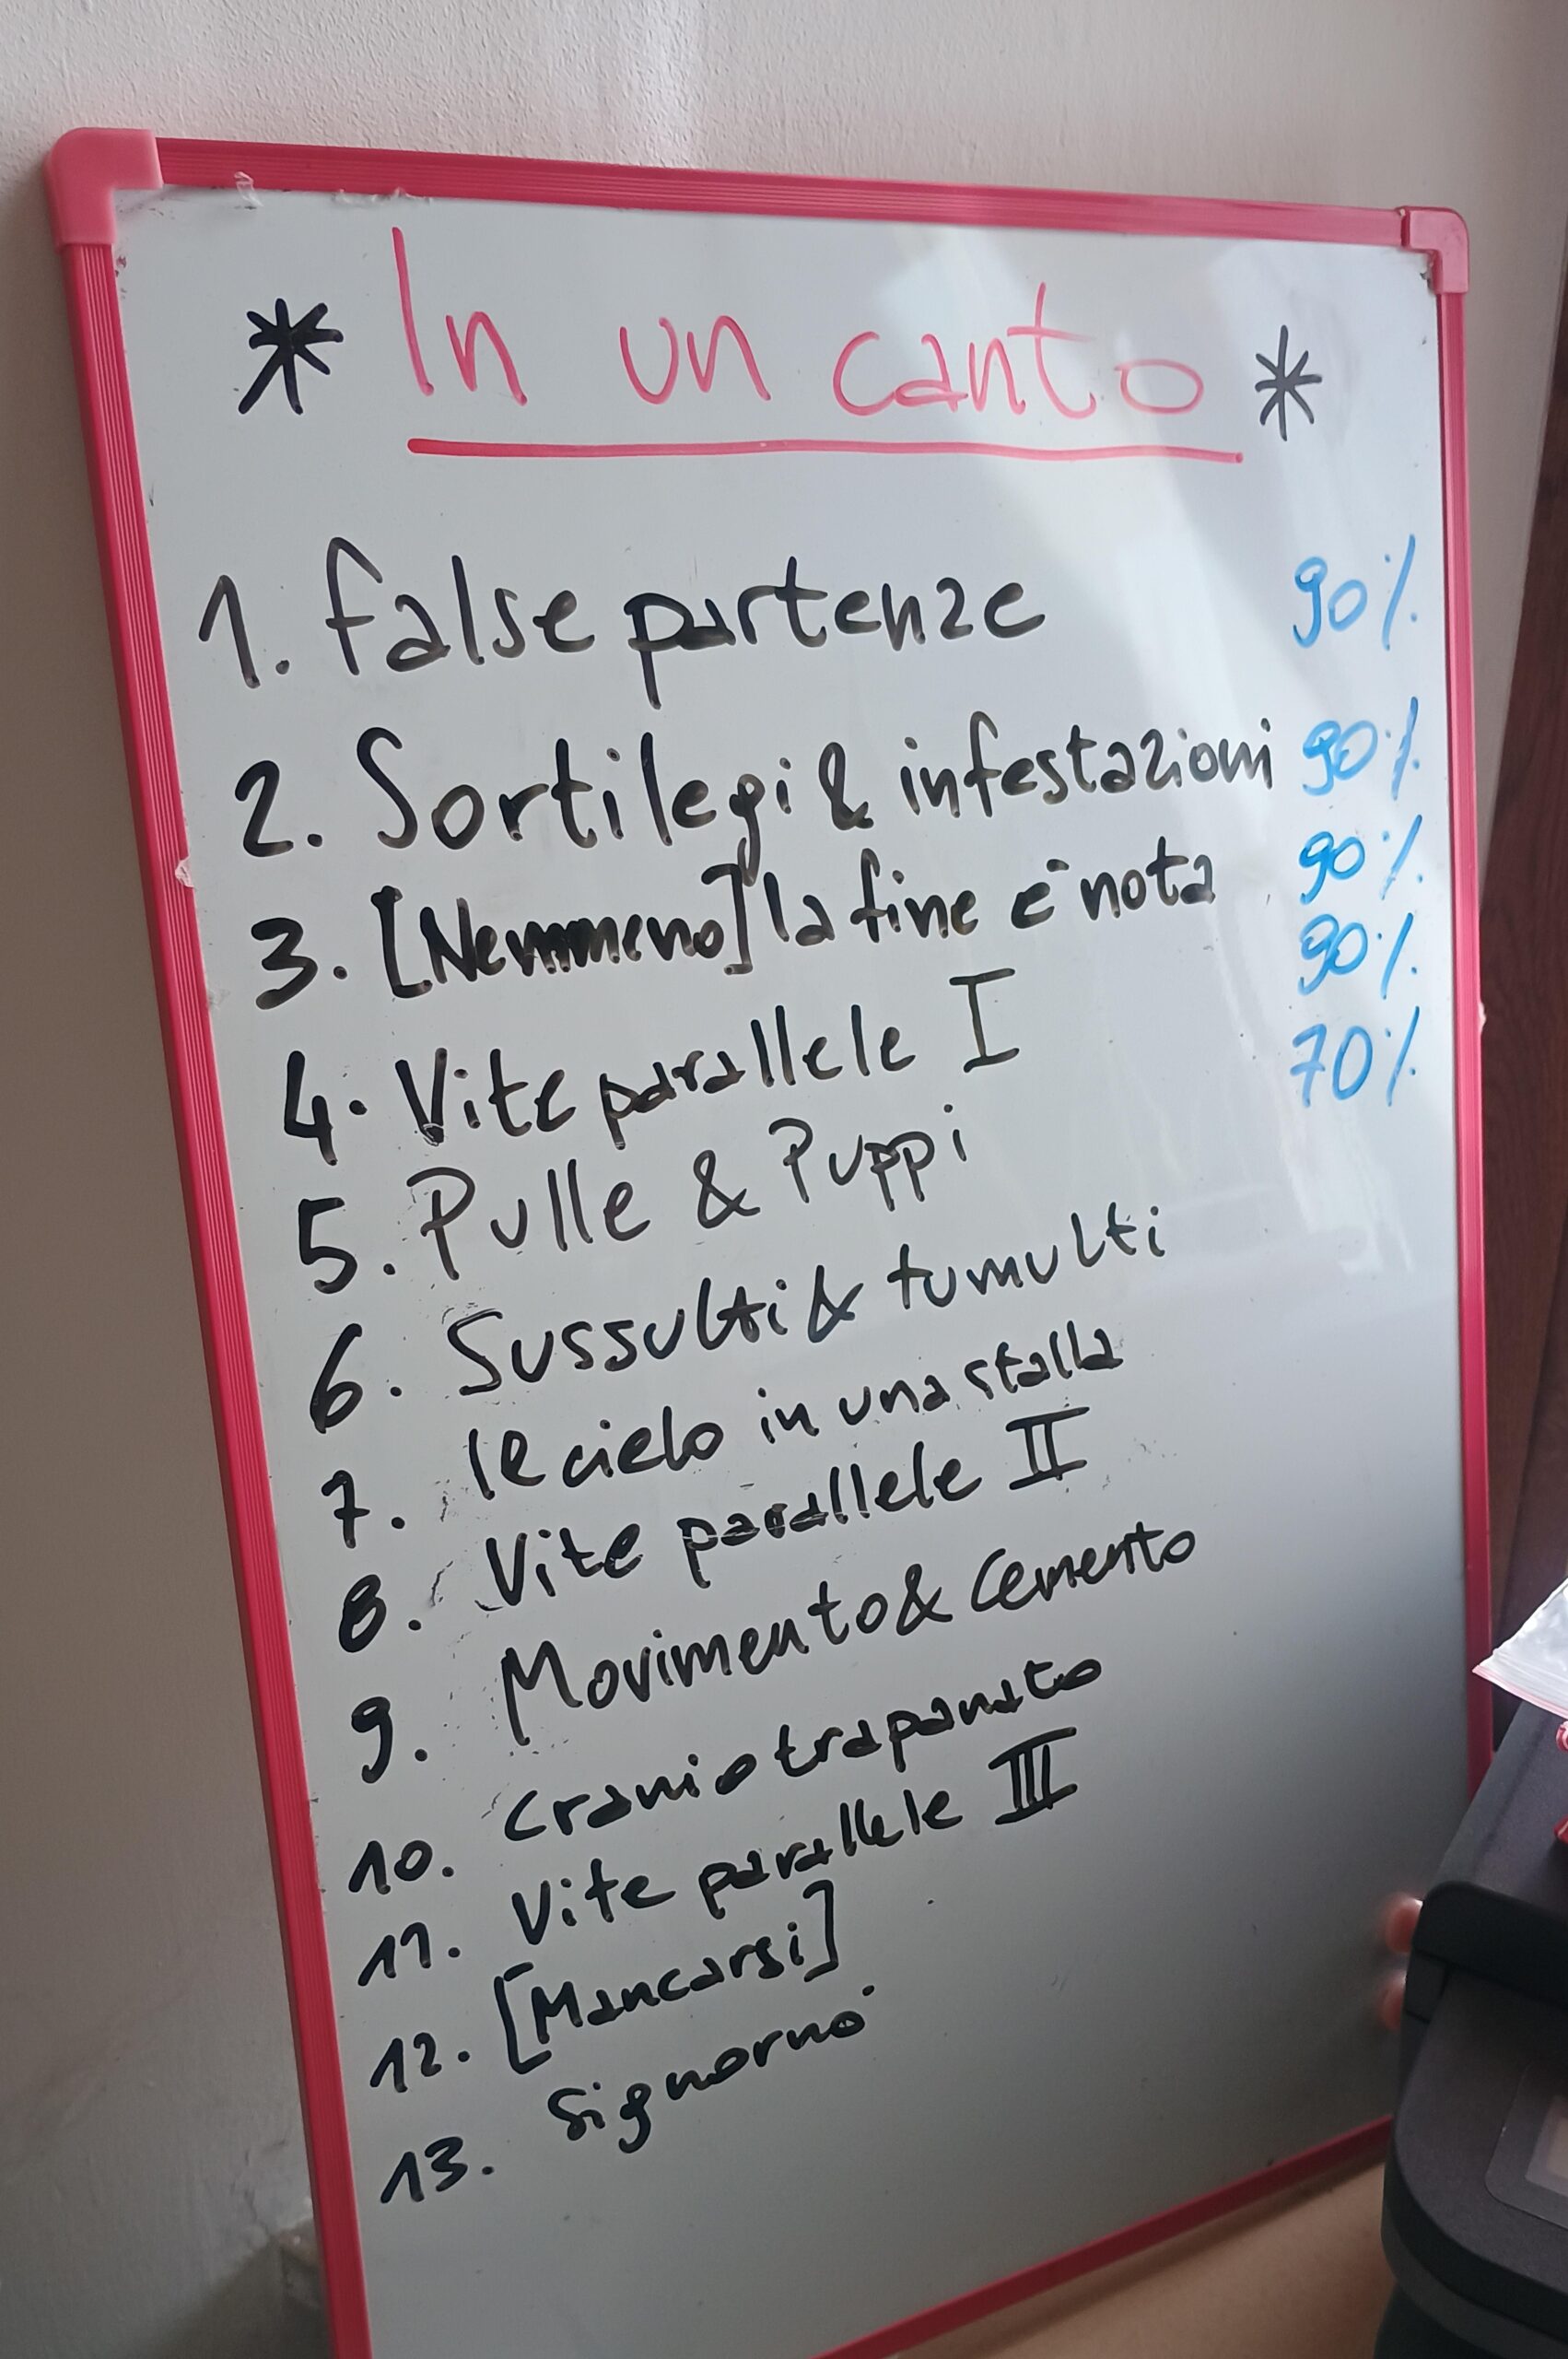 * In un canto *
1. False partenze 90%
2. Sortilegi & infestazioni 90%
3. [Nemmeno] la fine è nota 90%
4. Vite parallele I 90%
5. Pulle & Puppi 70%
6. Sussulti & tumulti
7. Il cielo in una stalla
8. Vite parallele II
9. Movimento & Cemento
10. Cranio trapanato
11. Vite parallele III
12. [Mancarsi]
13. Signornò